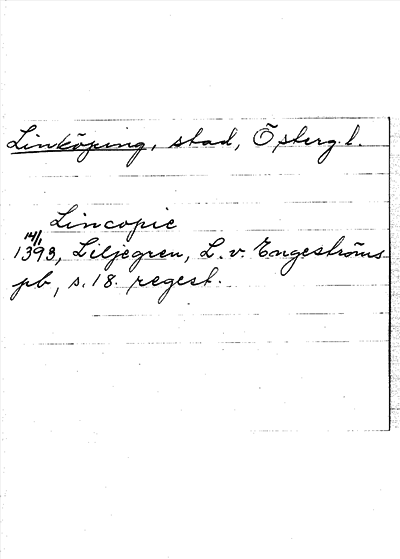 Linköping, stad, Österg. l.
Lincopie
14/1
1393, Liljegren, L. v. Engeströms
pb, s. 18. regest.